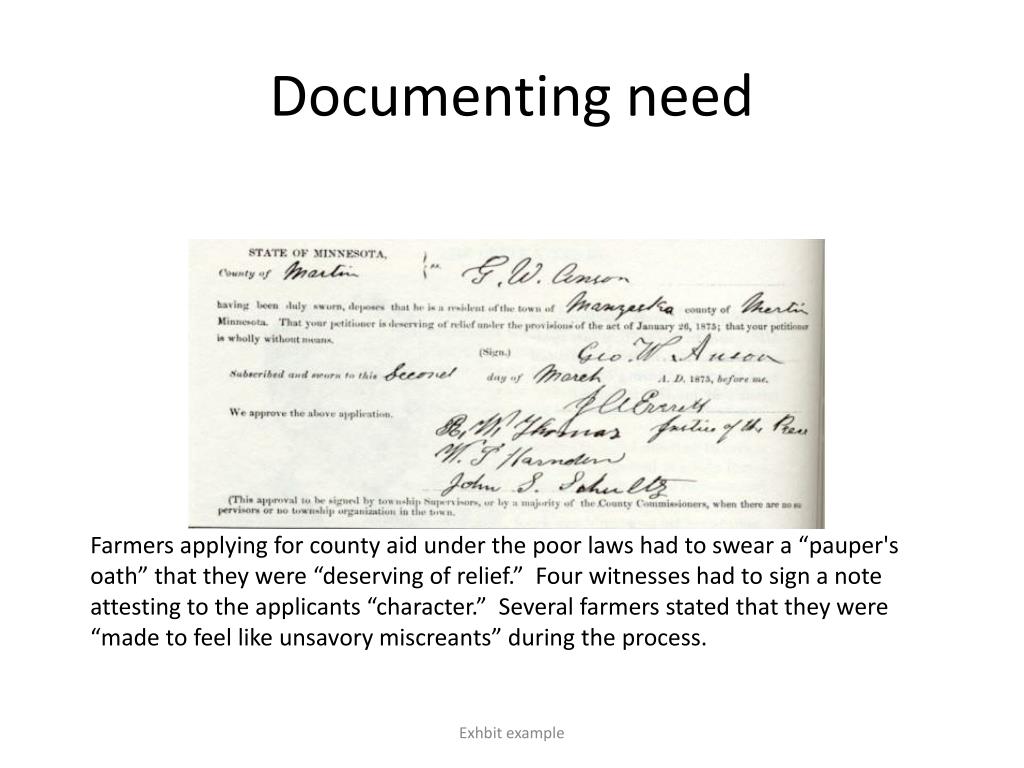 Documenting need
STATE OF MINNESOTA,
County of Martin } ss. G. W. Anson
having been duly sworn, deposes that he is a resident of the town of Manyeska county of Martin
Minnesota. That your petitioner is deserving of relief under the provisions of the act of January 26, 1875; that your petitioner
is wholly without means.
(Sign.) Geo. W. Anson
Subscribed and sworn to this Second day of March A. D. 1875, before me.
Everett
We approve the above application.
R. W. Thomas Justice of the Peace
W. T Harnden
John S. Schultz
(This approval to be signed by township Supervisors, or by a majority of the County Commissioners, when there are no su
pervisors or no township organization in the town.
Farmers applying for county aid under the poor laws had to swear a “pauper's
oath” that they were “deserving of relief.” Four witnesses had to sign a note
attesting to the applicants “character.” Several farmers stated that they were
“made to feel like unsavory miscreants” during the process.
Exhbit example